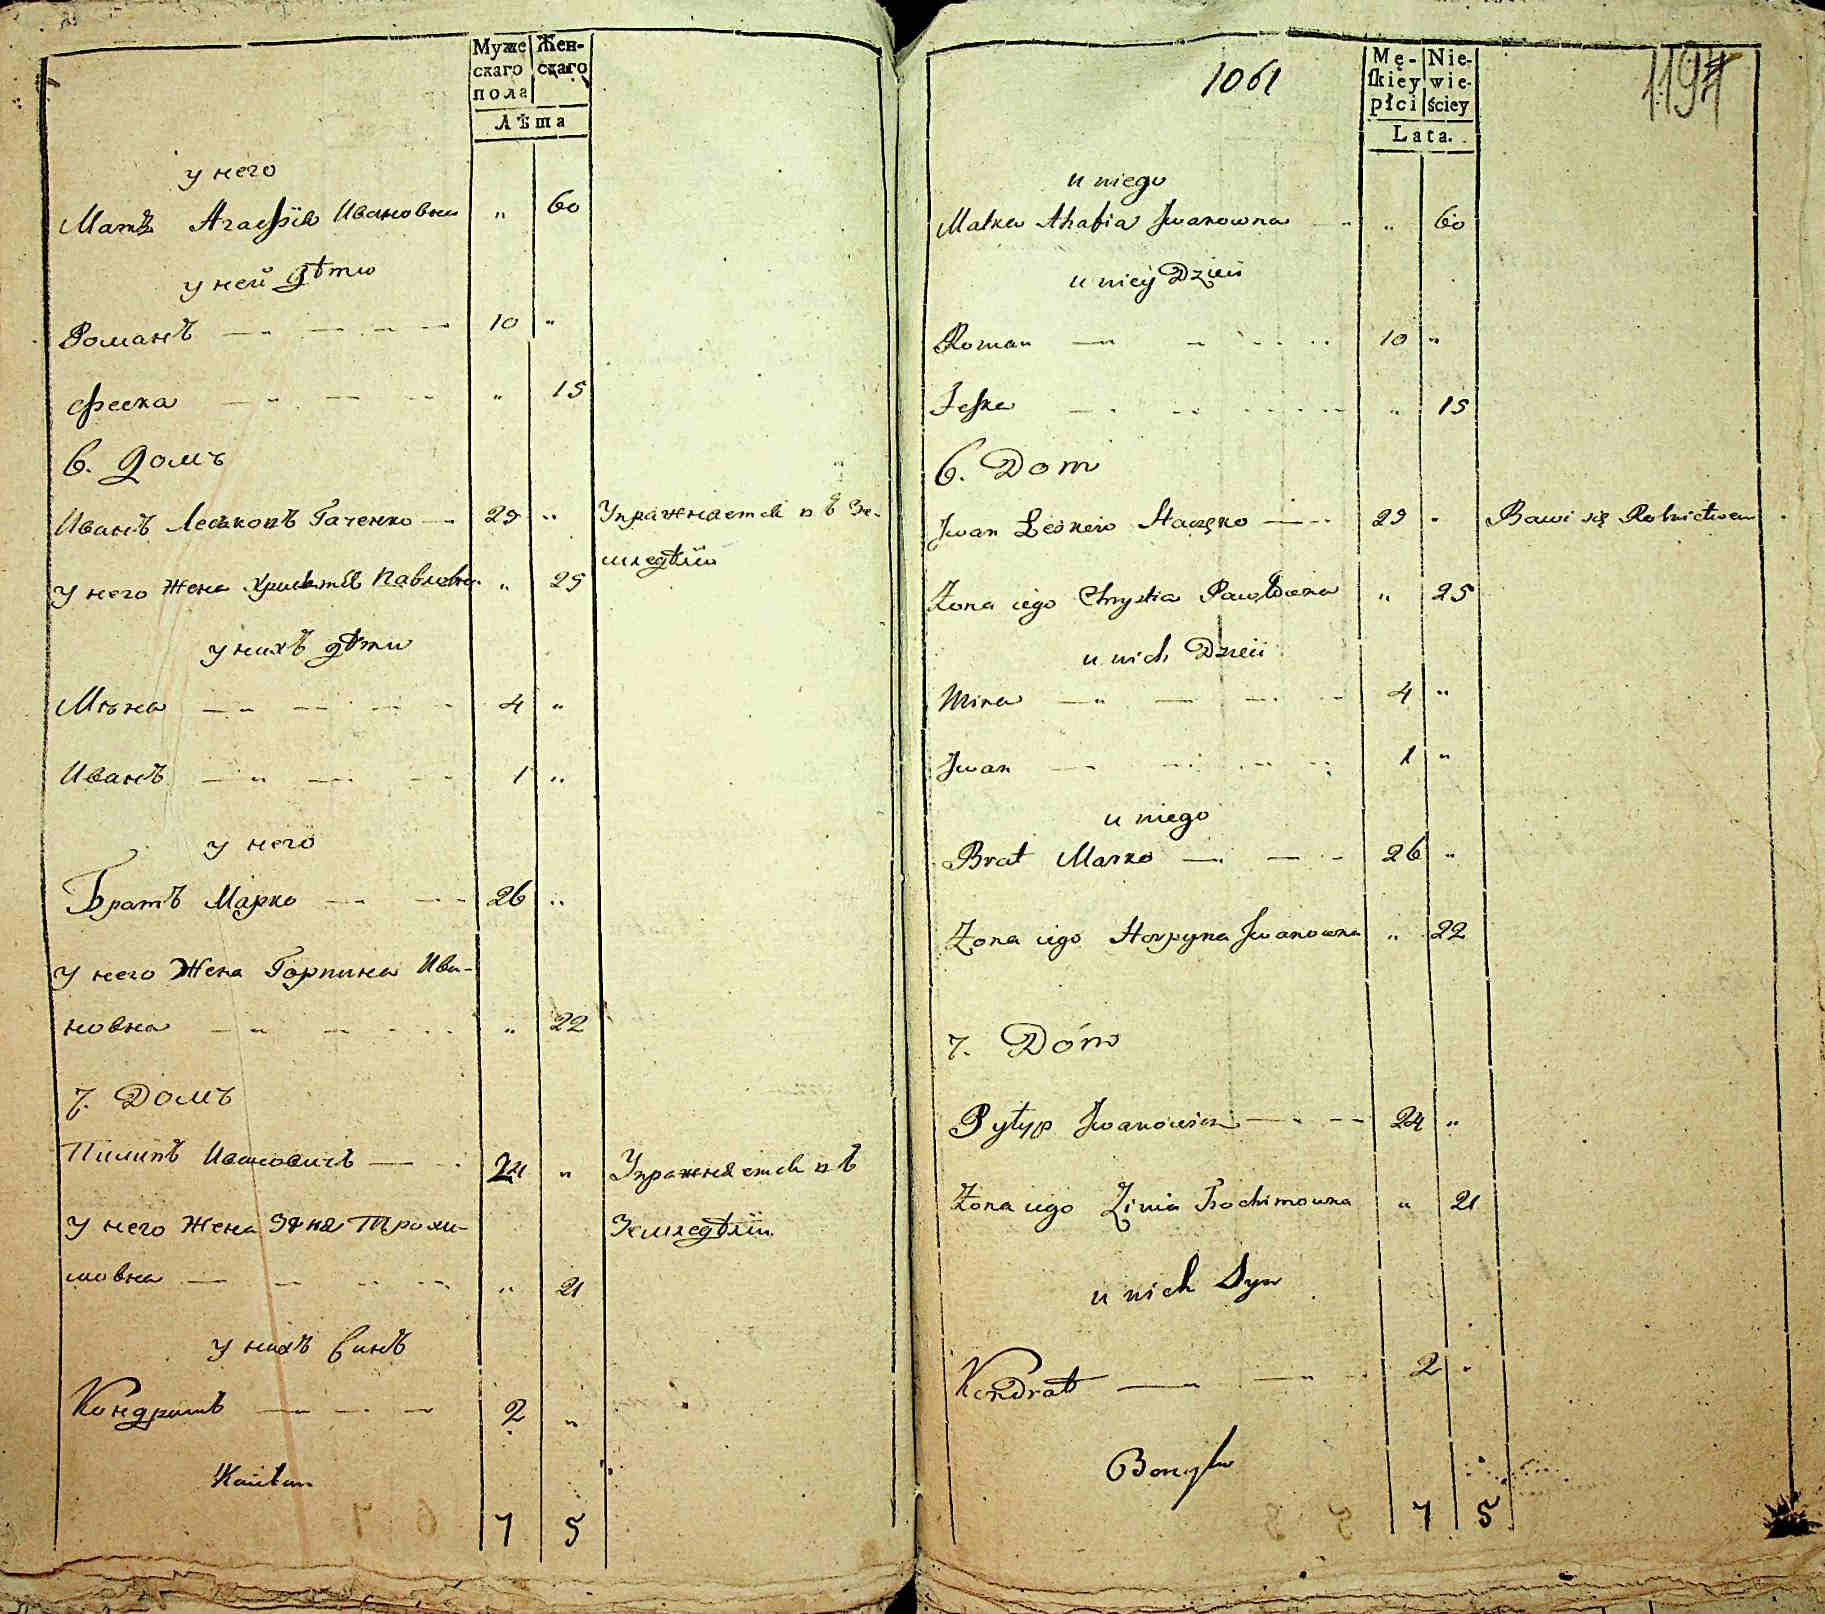 Муже Жен-
скаго скаго
пола
Лѣта
у него
Матъ Агафія Ивановна " 60
у ней дѣти
Романъ 10 "
Феска " 15
6. Домъ
Иванъ Леськовъ Гаченко 29 " Упражняется въ Зе-
мледѣліи
у него Жена Христя Павловна " 25
у нихъ дѣти
Мина 4 "
Иванъ 1 "
у него
Братъ Марко 26 "
у него Жена Горпина Ива-
новна " 22
7. Домъ
Пилипъ Ивановичъ 24 " Упражняется въ
у него Жена Зѣня Трохи- Земледѣліи
мовна " 21
у нихъ Синъ
Кондратъ 2 "
7 5
1061
1194
Mę- Nie-
ſkiey wie-
płci ściey
Lata.
u niego
Matka Ahafia Jwanowna " 60
u niey Dzieci
Roman 10 "
Feska " 15
6. Dom
Jwan Leśkow Haczęko 29 " Bawi się Rolnictwem
Żona iego Chrystia Pawłowna " 25
u nich Dzieci
Mina 4 "
Jwan 1 "
u niego
Brat Marko 26 "
Żona iego Horpyna Jwanowna " 22
7. Dóm
Pyłyp Jwanowicz 24 "
Żona iego Zinia Trochimowna " 21
u nich Syn
Kondrat 2 "
7 5